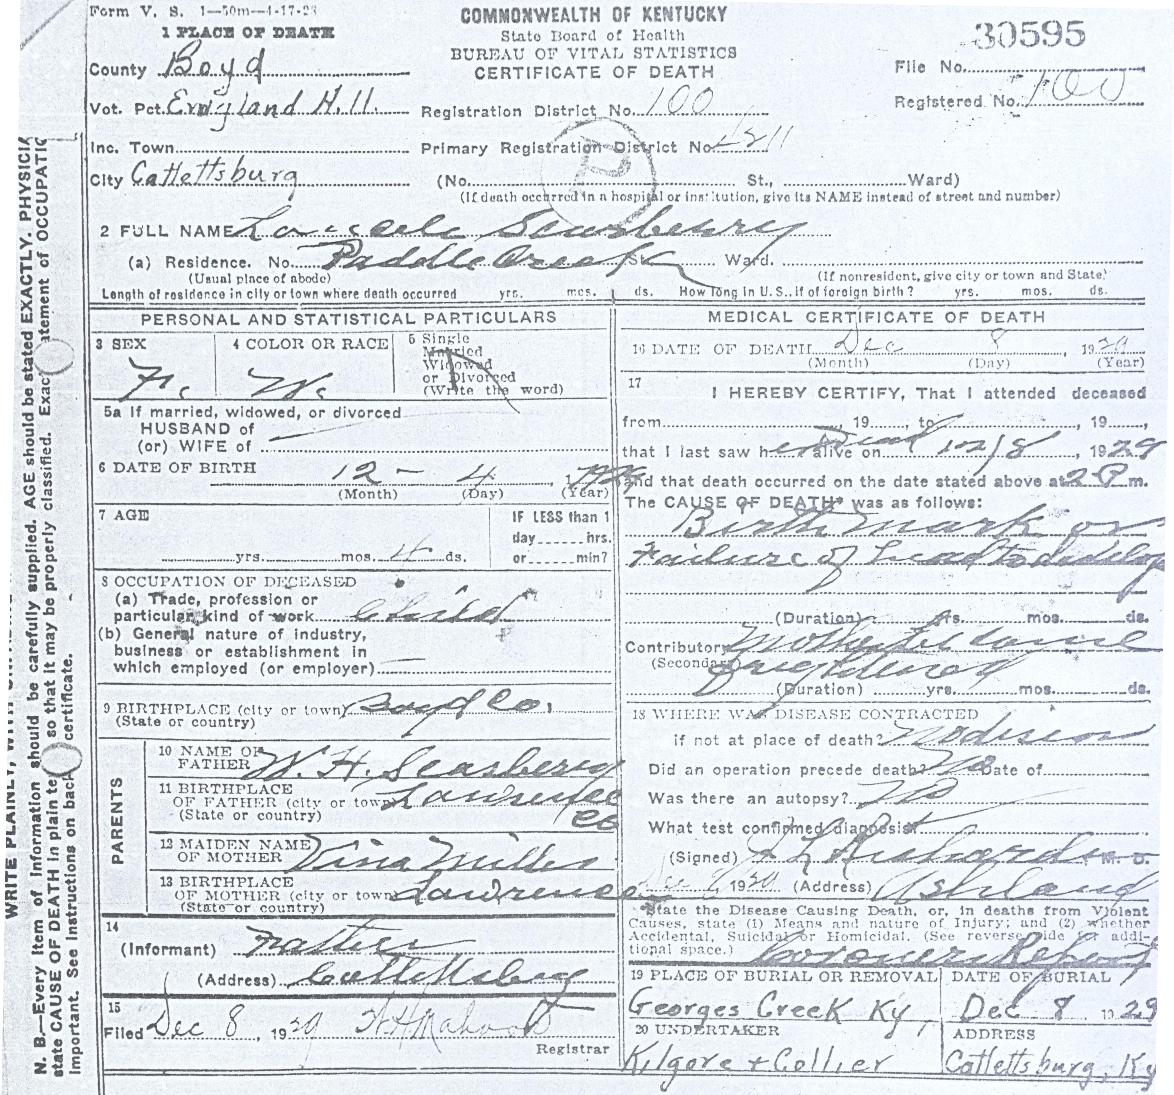 Form V. S. 1—50m—4-17-28
COMMONWEALTH OF KENTUCKY
State Board of Health
BUREAU OF VITAL STATISTICS
CERTIFICATE OF DEATH
30595
File No.
Registered No. 100
1 PLACE OF DEATH
County Boyd
Vot. Pct. England Hill
Registration District No. 100
Inc. Town
Primary Registration District No.
City Catlettsburg
(No. St., Ward)
(If death occurred in a hospital or institution, give its NAME instead of street and number)
2 FULL NAME
(a) Residence. No. Paddle Creek St. Ward.
(Usual place of abode)
(If nonresident, give city or town and State)
Length of residence in city or town where death occurred yrs. mos. ds. How long in U.S., if of foreign birth? yrs. mos. ds.
PERSONAL AND STATISTICAL PARTICULARS
3 SEX
4 COLOR OR RACE W.
5 Single
Married
Widowed
or Divorced
(Write the word)
5a If married, widowed, or divorced
HUSBAND of
(or) WIFE of
6 DATE OF BIRTH 12 - 4, 1929
(Month) (Day) (Year)
7 AGE
yrs. mos. 4 ds.
IF LESS than 1
day hrs.
or min?
8 OCCUPATION OF DECEASED
(a) Trade, profession or
particular kind of work Child
(b) General nature of industry,
business or establishment in
which employed (or employer)
9 BIRTHPLACE (city or town) Boyd Co.
(State or country)
PARENTS
10 NAME OF
FATHER W. H. Seasberry
11 BIRTHPLACE
OF FATHER (city or town) Lawrence
(State or country) Co
12 MAIDEN NAME
OF MOTHER Vina Miller
13 BIRTHPLACE
OF MOTHER (city or town) Lawrence
(State or country)
14
(Informant) Father
(Address) Catlettsburg
15
Filed Dec 8, 1929
Registrar
MEDICAL CERTIFICATE OF DEATH
16 DATE OF DEATH Dec 8, 1929
(Month) (Day) (Year)
17
I HEREBY CERTIFY, That I attended deceased
from 19 , to 19 ,
that I last saw her Dead alive on 12/8, 1929
and that death occurred on the date stated above at 2 P m.
The CAUSE OF DEATH* was as follows:
Birth mark or
Failure of head to develop
(Duration) yrs. mos. ds.
Contributory Mother
(Secondary) frightened
(Duration) yrs. mos. ds.
18 WHERE WAS DISEASE CONTRACTED
if not at place of death?
Did an operation precede death? No Date of
Was there an autopsy? No
What test confirmed diagnosis?
(Signed) Richards M. D.
1929 (Address) Ashland
*State the Disease Causing Death, or, in deaths from Violent
Causes, state (1) Means and nature of Injury; and (2) whether
Accidental, Suicidal or Homicidal. (See reverse side for addi-
tional space.) Coroners Report
19 PLACE OF BURIAL OR REMOVAL
Georges Creek Ky,
DATE OF BURIAL
Dec 8 1929
20 UNDERTAKER
Kilgore + Collier
ADDRESS
Catlettsburg, Ky
N. B.—Every item of information should be carefully supplied. AGE should be stated EXACTLY. PHYSICIA
state CAUSE OF DEATH in plain te so that it may be properly classified. Exac atement of OCCUPATIO
important. See instructions on back certificate.